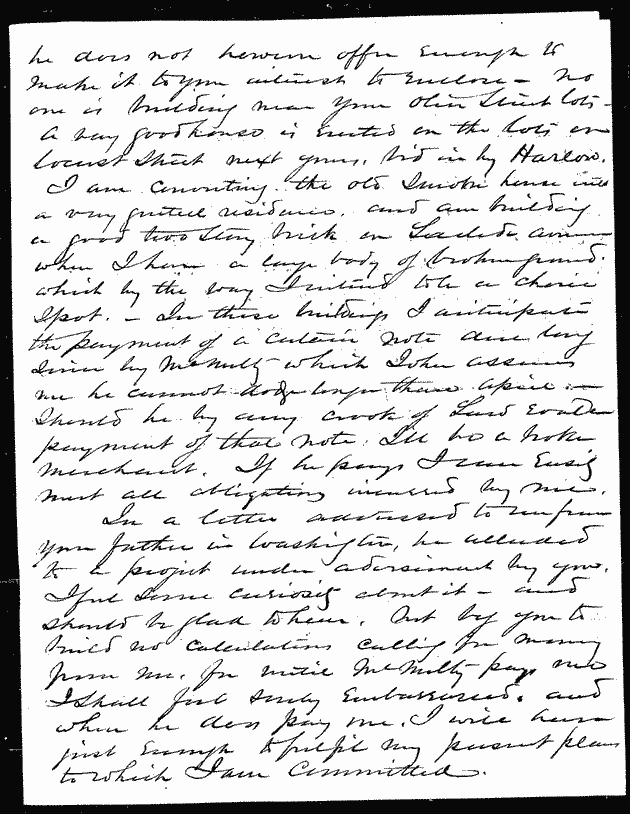 he does not however offer enough to
make it to your interest to enclose - no
one is building near your Olive Street lots -
A very good house is erected on the lots on
Locust Street next yours, bid in by Harlow.
I am converting the old house into
a very genteel residence, and am building
a good two story brick on Laclede Avenue
where I have a large body of broken ground.
which by the way I intend to be a choice
Spot. - In these buildings I anticipate
the payment of a certain note due long
since by McNulty which John assures
me he cannot dodge longer than April -
Should he by any crook of Law evade
payment of that note I'll be a broke
merchant. If he pays I can easily
meet all obligations incurred by me.
In a letter addressed to me from
your father in Washington, he alluded
to a project under advisement by you.
I feel some curiosity about it - and
should be glad to hear. but beg you to
build no calculations calling for money
from me. for until McNulty pays me
I shall feel sorely embarrassed. and
when he does pay me. I will have
just enough to fulfil my present plans
to which I am committed.